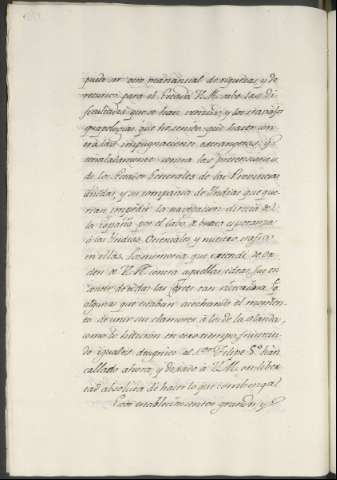 puede ser otro manantial de riquezas, y de
recursos para el Estado. V.M. sabe las di-
ficultades que se han vencido, y los trabajos
que ha sido
varias impugnaciones extrangeras, y
señaladamente contra las pretensiones
de los Estados Generales de las Provincias
Unidas, y su compañia de Indias que que-
rian impedir la navegacion directa de
la España por el cabo de buena esperanza
á las Indias Orientales, y nuestro trafico
en ellas. La memoria que extendí de or-
den de V.M. contra aquellas ideas, fue en
todas las Cortes tan
algunas que estaban acechando el momen-
to de unir sus clamores á los de la Olanda,
como lo hicieron en otro tiempo, hacien-
do iguales al Sor. Felipe 5.º han
callado ahora, y dexado á V.M. en liber-
tad absoluta de hacer lo que convenga.
Estos establecimientos grandes, y